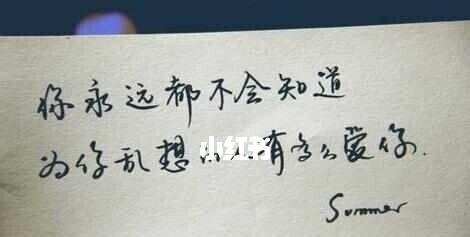 你永远都不会知道
为你乱想的人有多么爱你.
小红书
Summer